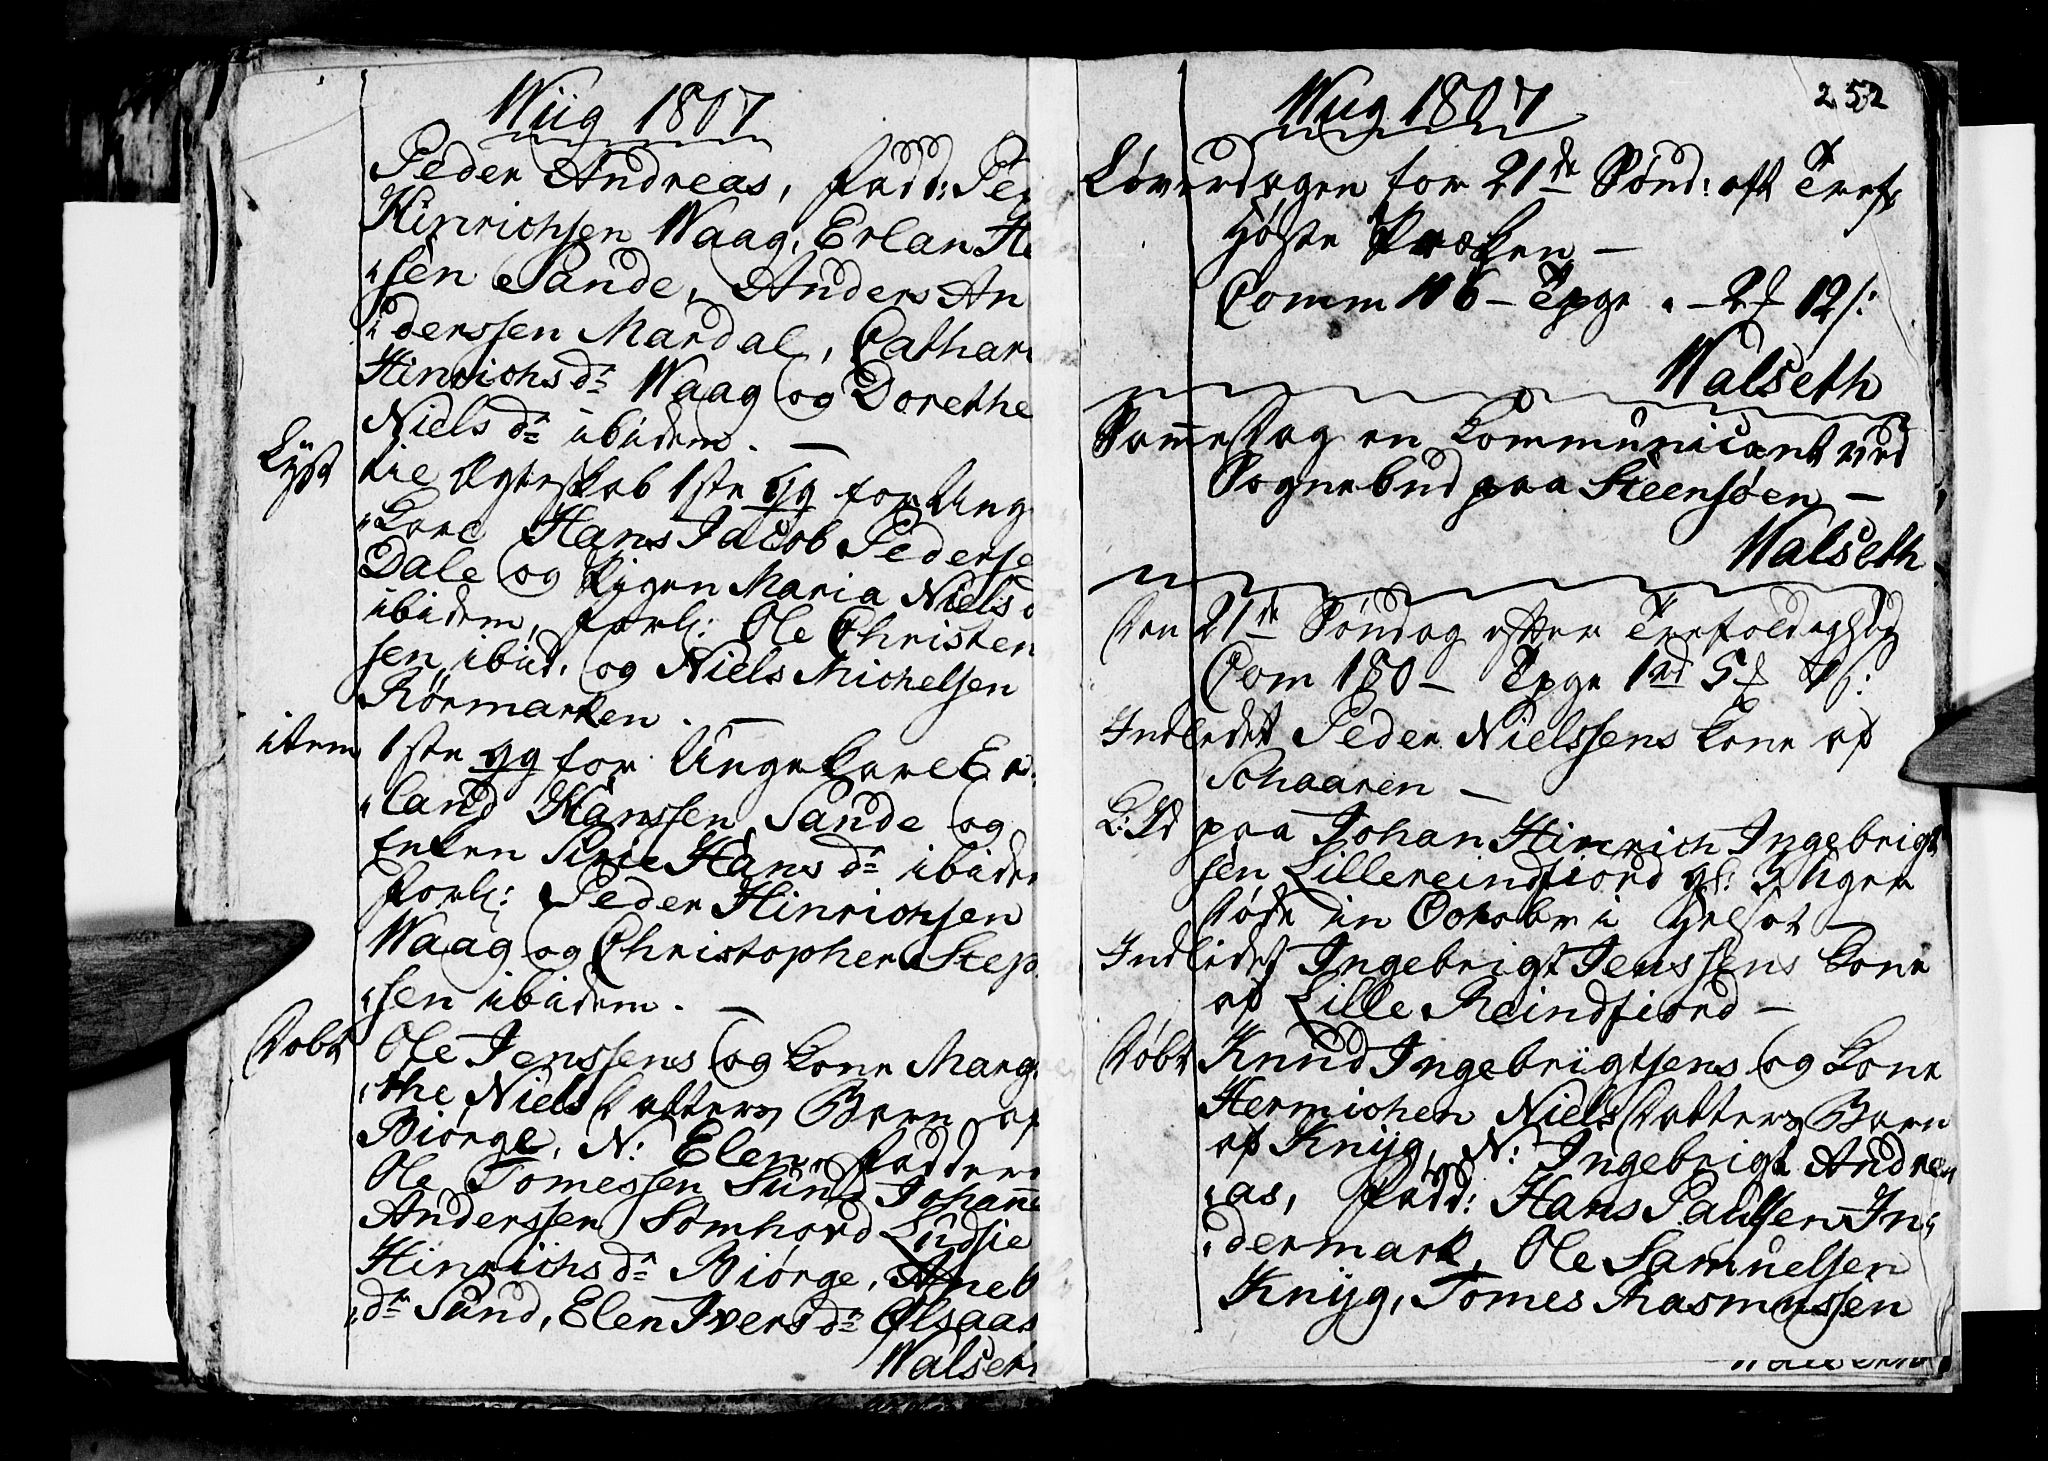 Wiig 1807
Peder Andreas, Fadd: Pe
Hinrichsen Waag, Erlan Ha
sen Sande, Anders An
derssen Mardal, Cathari
Hinrichs dr Waag og Dorethe
Niels dr ibidem. —
Lyst til Ægteskab 1ste gg for Unge
Karl Hans Jacob Pederse
Dale og Pigen Maria Niels d
ibidem, forl: Ole Christen
sen ibid. og Niels Michelsen
Rörmarken. —
item 1ste gg for Unge Karl Er
land Hanssen Sande og
Enken Siric Hans dr ibidem
forl: Peder Hinrichsen
Waag og Christopher Step
sen ibidem. —
Döbt Ole Jenssens og Kone Marg
the Niels Datters Barn af
Biörge, N: Elen, Faddere
Ole Tomessen Sund Johan
Anderssen Sømhovd Ludsie
Hinrichs dr Biörge, Aneb
dr Sund, Elen Ivers dr Olsaas
Walseth
Wiig 1807
252
Löverdagen for 21de Sönd: eft Tref
Höste Præken —
Comm 106 — Tpge . — 2 f 12 s:
Walseth
Samme Dag en Communicant ved
Sognebud paa Steensøen —
Walseth
Den 21de Söndag efter Trefoldighed
Com 180 — Tpge 1 rd 5 f
Indledet Peder Nielssens Kone af
Schaaren —
L: Id paa Johan Hinrich Ingebrigt
sen Lillereindfiord gl: 3 Uger
døde in October i
Indledet Ingebrigt Jenssens Kone
af Lille Reindfiord —
Döbt Knud Ingebrigtsens og Kone
Hermichen Niels Datters Barn
af Knijg, N: Ingebrigt Andre
as, Fadd: Hans Paulsen In
dermark, Ole Samuelsen
Knijg, Tomes Rasmussen